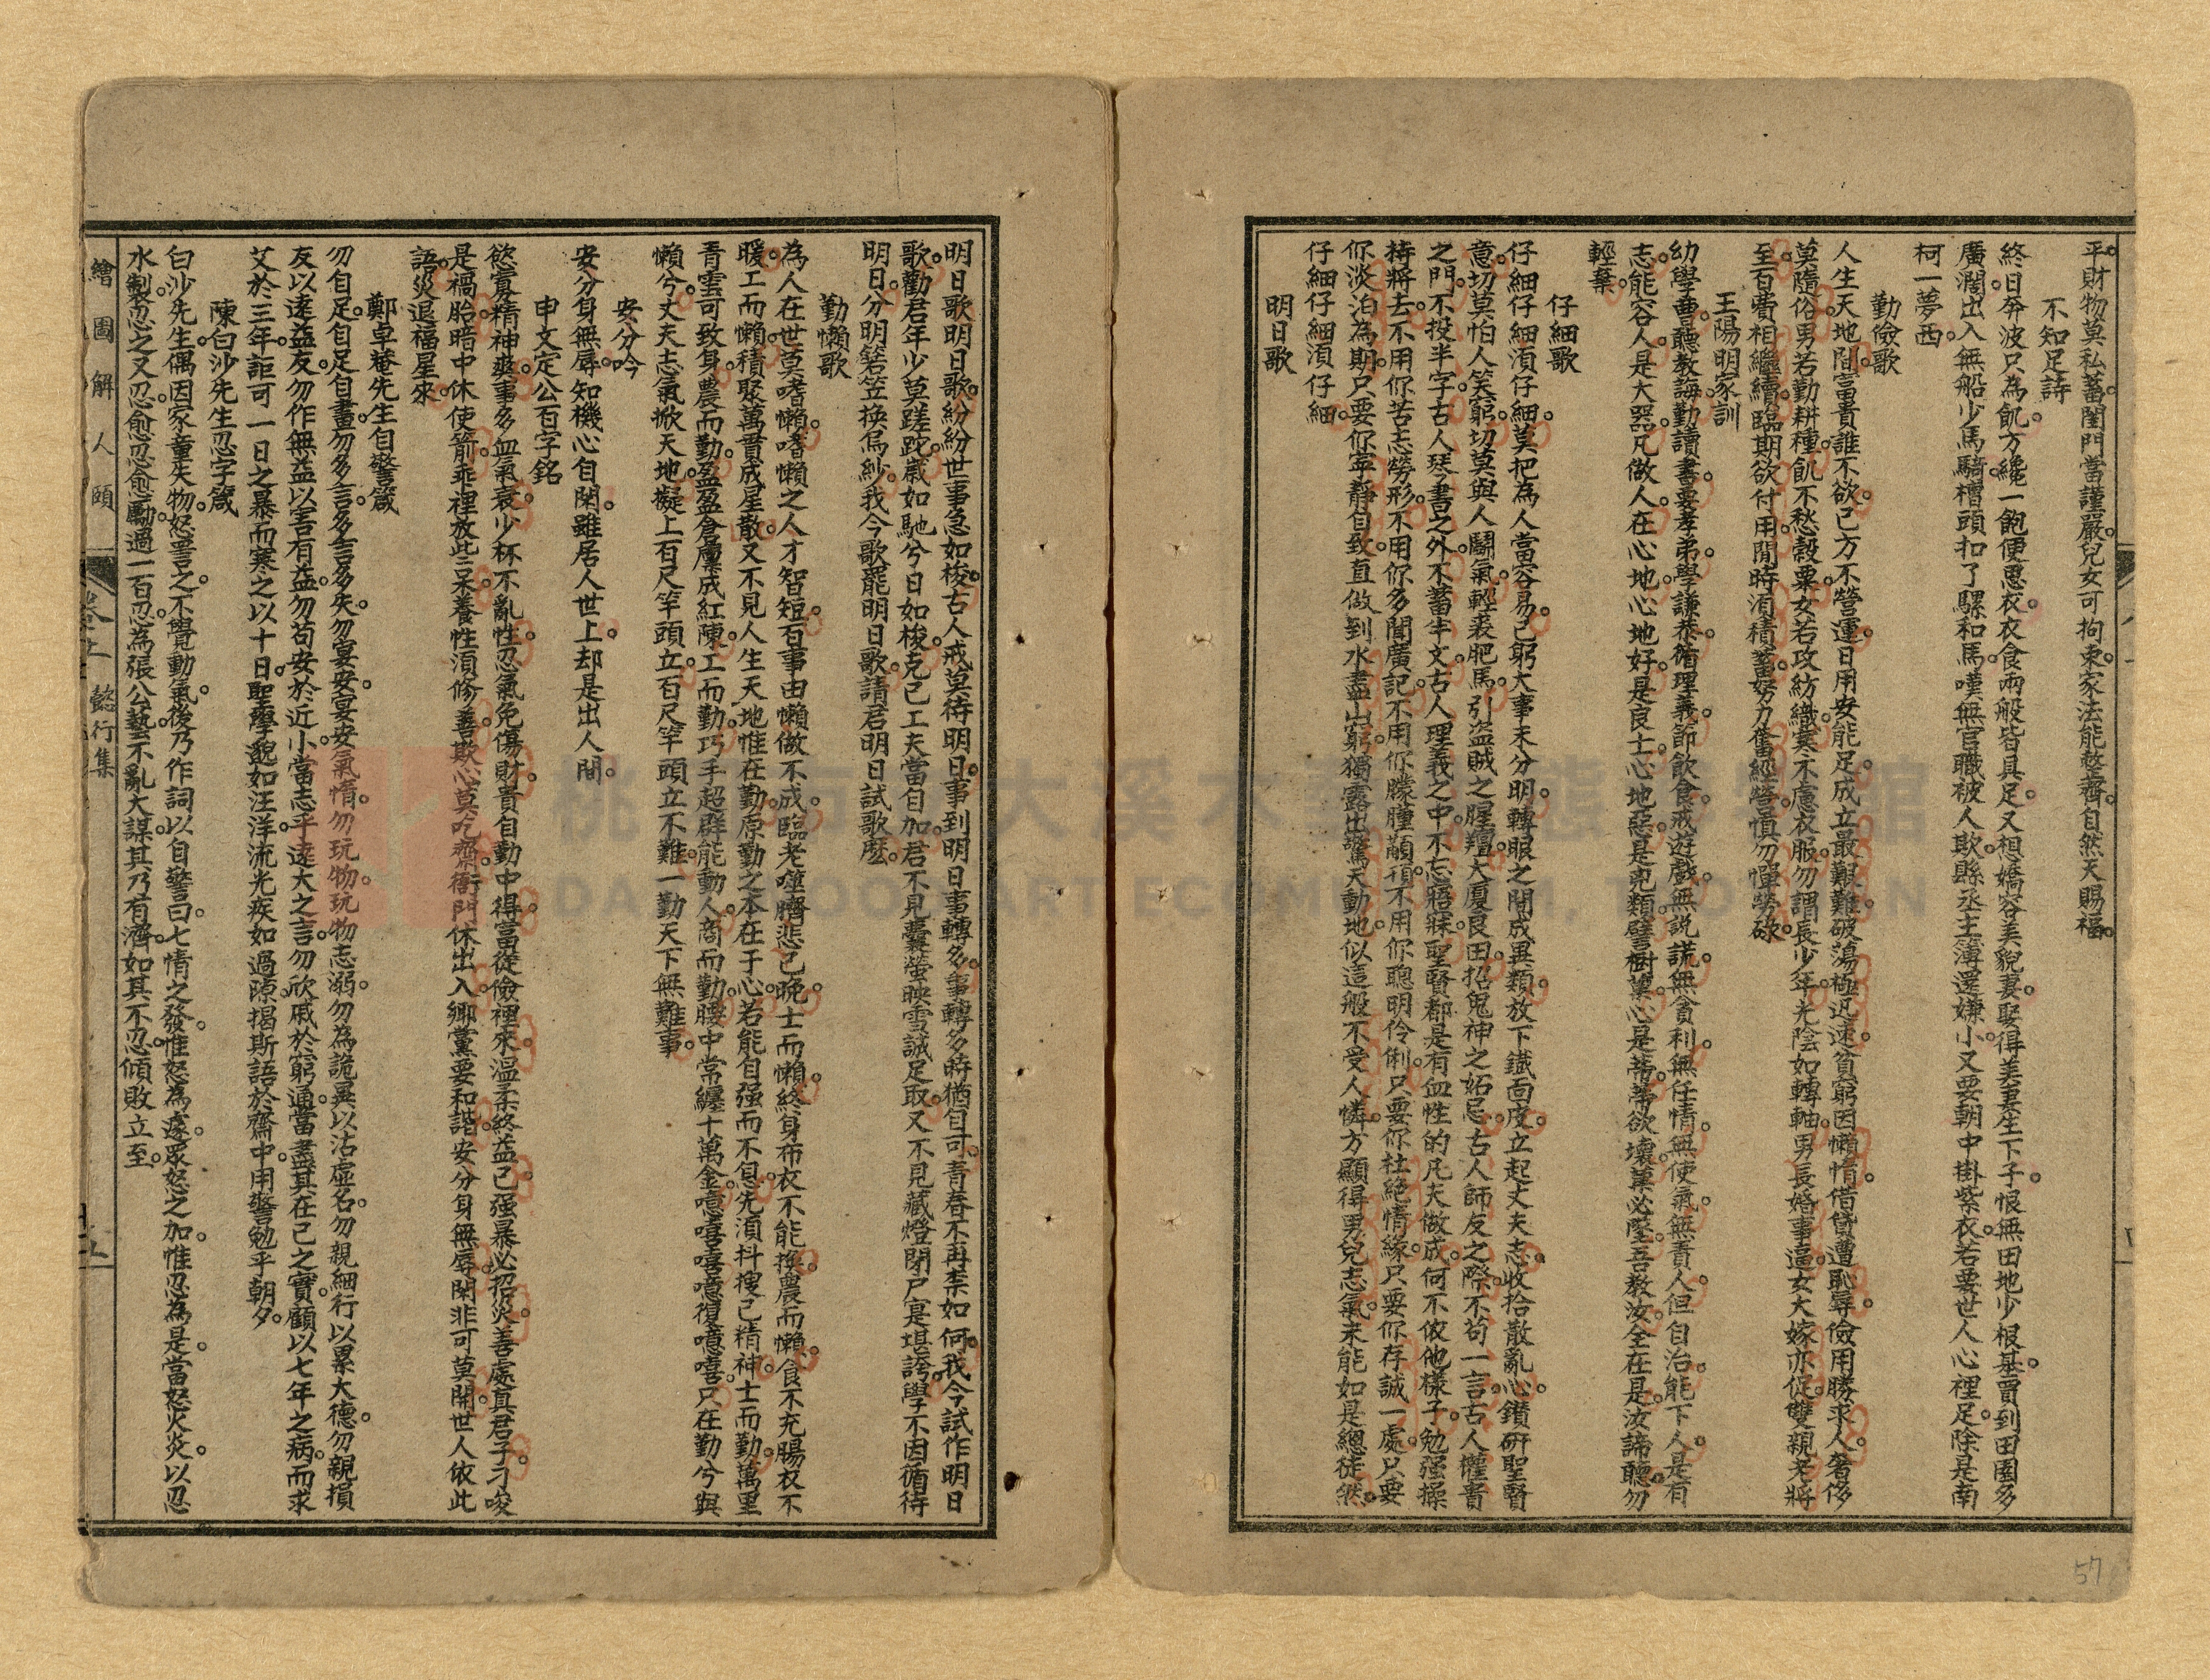 平。財物莫私蓄。閨門當謹嚴。兒女可拘束。家法能整齊。自然天賜福。
不知足詩
終日奔波只為飢。方纔一飽便思衣。衣食兩般皆具足。又想嬌容美貌妻。娶得美妻生下子。恨無田地少根基。買到田園多
廣濶。出入無船少馬騎。槽頭扣了騾和馬。嘆無官職被人欺。縣丞主簿還嫌小。又要朝中掛紫衣。若要世人心裡足。除是南
柯一夢西。
勤儉歌
人生天地間。富貴誰不欲。己方不營運。日用安能足。成立最艱難。破蕩極迅速。貧窮因懶惰。借貸遭恥辱。儉用勝求人。奢侈
莫隨俗。男若勤耕種。飢不愁穀粟。女若攻紡織。寒不慮衣服。勿謂長少年。光陰如轉軸。男長婚事逼。女大嫁亦促。雙親老將
至。百費相繼續。臨期欲付用。閒時須積蓄。努力奮經營。慎勿憚勞碌。
王陽明家訓
幼學曹。聽教誨。勤讀書。要孝弟。學謙恭。循理義。節飲食。戒遊戲。無說謊。無貪利。無任情。無使氣。無責人。但自治。能下人。是有
志。能容人。是大器。凡做人。在心地。心地好。是良士。心地惡。是兇類。譬樹菓。心是蒂。蒂欲壞。菓必墜。吾教汝。全在是。汝諦聽。勿
輕棄。
仔細歌
仔細仔細須仔細。莫把為人當容易。己躬大事未分明。轉眼之間成異類。放下鐵面皮。立起丈夫志。收拾散亂心。鑽研聖賢
意。切莫怕人笑窮。切莫與人鬪氣。輕裘肥馬。引盜賊之腥羶。大厦良田。招鬼神之妬忌。古人師友之際。不苟一言。古人權貴
之門。不投半字。古人琴書之外。不蓄半文。古人理義之中。不忘寤寐。聖賢都是有血性的凡夫做成。何不依他樣子。勉强操
持將去。不用你苦志勞形。不用你多聞廣記。不用你朦朧顢頇。不用你聰明伶俐。只要你杜絕情緣。只要你存誠一處。只要
你淡泊為期。只要你寧靜自致。直做到水盡山窮。獨露出驚天動地。似這般不受人憐。方顯得男兒志氣。未能如是總徒然。
仔細仔細須仔細。
明日歌
明日歌。明日歌。紛紛世事急如梭。古人戒莫待明日。事到明日事轉多。事轉多時猶自可。青春不再柰如何。我今試作明日
歌。勸君年少莫蹉跎。歲如馳兮日如梭。克己工夫當自加。君不見囊螢映雪誠足取。又不見藏燈閉戶寔堪誇。學不因循待
明日。分明箬笠換烏紗。我今歌罷明日歌。請君明日試歌麽。
勤懶歌
為人在世莫嗜懶。嗜懶之人才智短。百事由懶做不成。臨老噬臍悲已晚。士而懶。終身布衣不能換。農而懶。食不充腸衣不
暖。工而懶。積聚萬貫成星散。又不見人生天地惟在勤。原勤之本在于心。若能自强而不息。先須抖擻己精神。士而勤。萬里
青雲可致身。農而勤。盈盈倉廩成紅陳。工而勤。巧手超群能動人。商而勤。腰中常纏十萬金。噫嘻嘻噫復噫嘻。只在勤兮與
懶兮。丈夫志氣掀天地。擬上百尺竿頭立。百尺竿頭立不難。一勤天下無難事。
安分吟
安分身無辱。知機心自閑。雖居人世上。却是出人間。
申文定公百字銘
慾寡精神爽。事多血氣衰。少杯不亂性。忍氣免傷財。貴自動中得。富從儉裡來。溫柔終益己。强暴必招災。善處真君子。刁唆
是禍胎。暗中休使箭。乖裡放些呆。養性須修善。欺心莫吃齋。衙門休出入。鄉黨要和諧。安分身無辱。閑非可莫開。世人依此
語。災退福星來。
鄭卓菴先生自警箴
勿自足。自足自畫。勿多言。多言多失。勿宴安。宴安氣惰。勿玩物。玩物志溺。勿為詭異以沽虛名。勿親細行以累大德。勿親損
友以遠益友。勿作無益以害有益。勿苟安於近小。當志乎遠大之言。勿欣戚於窮通。當盡其在己之實。顧以七年之病。而求
艾於三年。詎可一日之暴而寒之以十日。聖學邈如汪洋。流光疾如過隙。揭斯語於齋中。用警勉乎朝夕。
陳白沙先生忍字箴
白沙先生偶因家童失物。怒詈之。不覺動氣。後乃作詞以自警曰。七情之發。惟怒為遽。眾怒之加。惟忍為是。當怒火炎。以忍
水製。忍之又忍。愈忍愈勵。過一百忍。為張公藝。不亂大謀。其乃有濟。如其不忍。傾敗立至。
繪圖解人頤
卷十一
懿行集
五
57